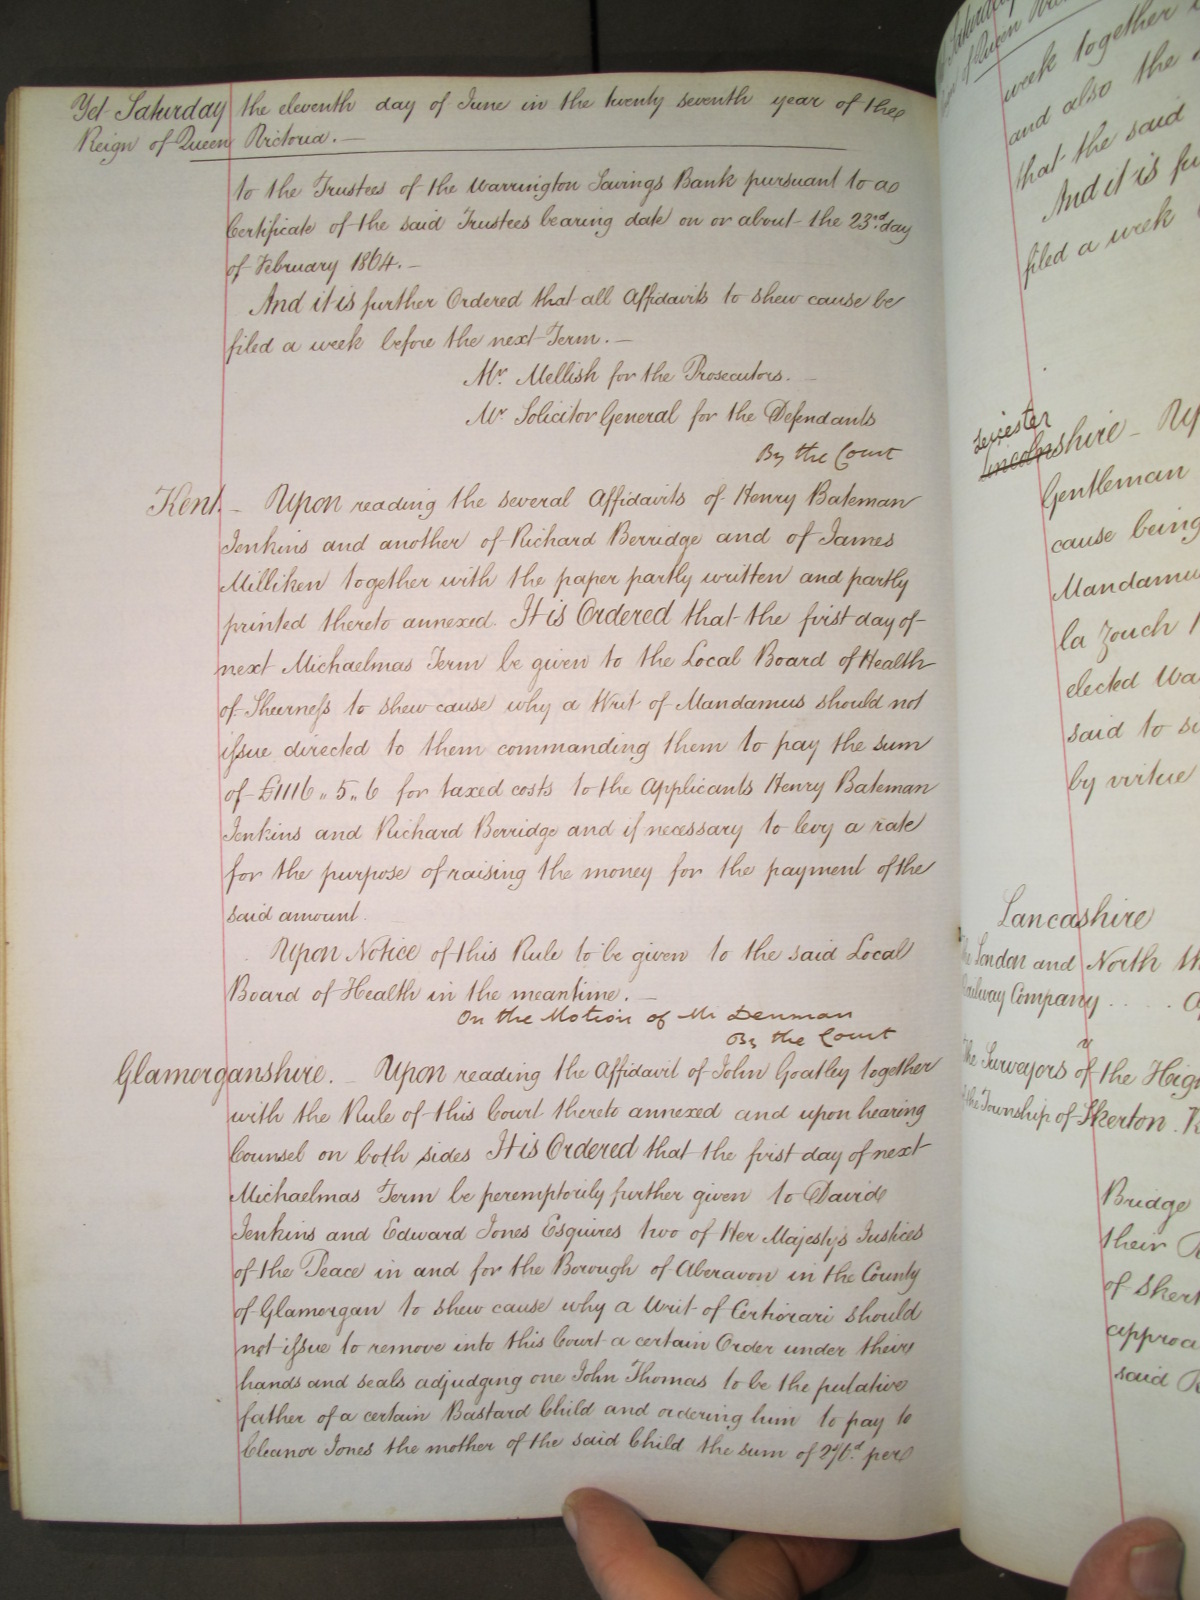 Yet Saturday the eleventh day of June in the twenty seventh year of the
Reign of Queen Victoria. —
to the Trustees of the Warrington Savings Bank pursuant to a
Certificate of the said Trustees bearing date on or about the 23rd day
of February 1864. —
And it is further Ordered that all Affidavits to shew cause be
filed a week before the next Term. —
Mr. Mellish for the Prosecutors. —
Mr Solicitor General for the Defendants
By the Court
Kent. — Upon reading the several Affidavits of Henry Bateman
Jenkins and another of Richard Berridge and of James
Milliken together with the paper partly written and partly
printed thereto annexed. It is Ordered that the first day of
next Michaelmas Term be given to the Local Board of Health
of Sheerness to shew cause why a Writ of Mandamus should not
issue directed to them commanding them to pay the sum
of £1116 „ 5 „ 6 for taxed costs to the Applicants Henry Bateman
Jenkins and Richard Berridge and if necessary to levy a rate
for the purpose of raising the money for the payment of the
said amount.
Upon Notice of this Rule to be given to the said Local
Board of Health in the meantime. —
On the Motion of Mr Denman
By the Court
Glamorganshire. — Upon reading the Affidavit of John Goatley together
with the Rule of this Court thereto annexed and upon hearing
Counsel on both sides It is Ordered that the first day of next
Michaelmas Term be peremptorily further given to David
Jenkins and Edward Jones Esquires two of Her Majesty's Justices
of the Peace in and for the Borough of Aberavon in the County
of Glamorgan to shew cause why a Writ of Certiorari should
not issue to remove into this Court a certain Order under their
hands and seals adjudging one John Thomas to be the putative
father of a certain Bastard Child and ordering him to pay to
Eleanor Jones the mother of the said Child the sum of 2/6d. per
week together
and also the
that the said
And it is
filed a week
Leicester
Lincolnshire —
Gentleman
cause being
Mandamu
la Zouch
elected Wa
said to
by virtue
Lancashire
The London and North
Railway Company . . . .
The Surveyors of the High
of the Township of Skerton.
Bridge
their
of Skert
approa
said